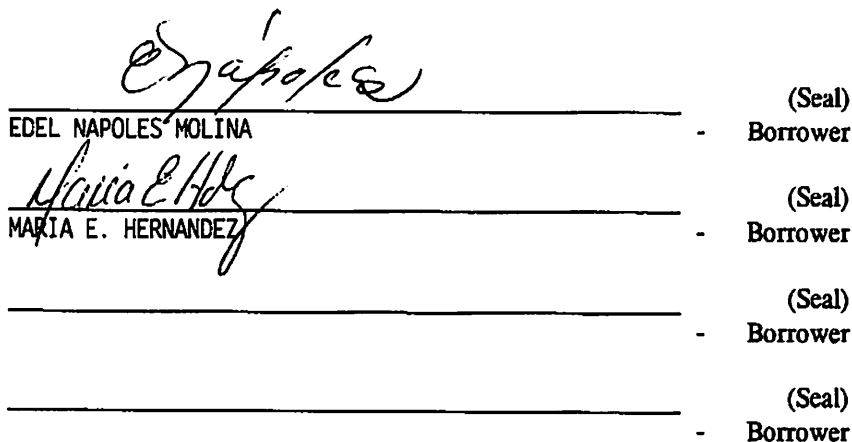 ENápoles
(Seal)
EDEL NAPOLES MOLINA - Borrower
Maria E Hdz
(Seal)
MARIA E. HERNANDEZ - Borrower
(Seal)
- Borrower
(Seal)
- Borrower